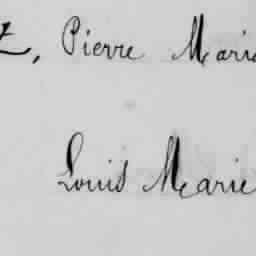 , Pierre Marie
Louis Marie